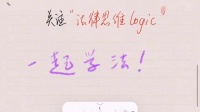 关注“法律思维logic”
一起学法！